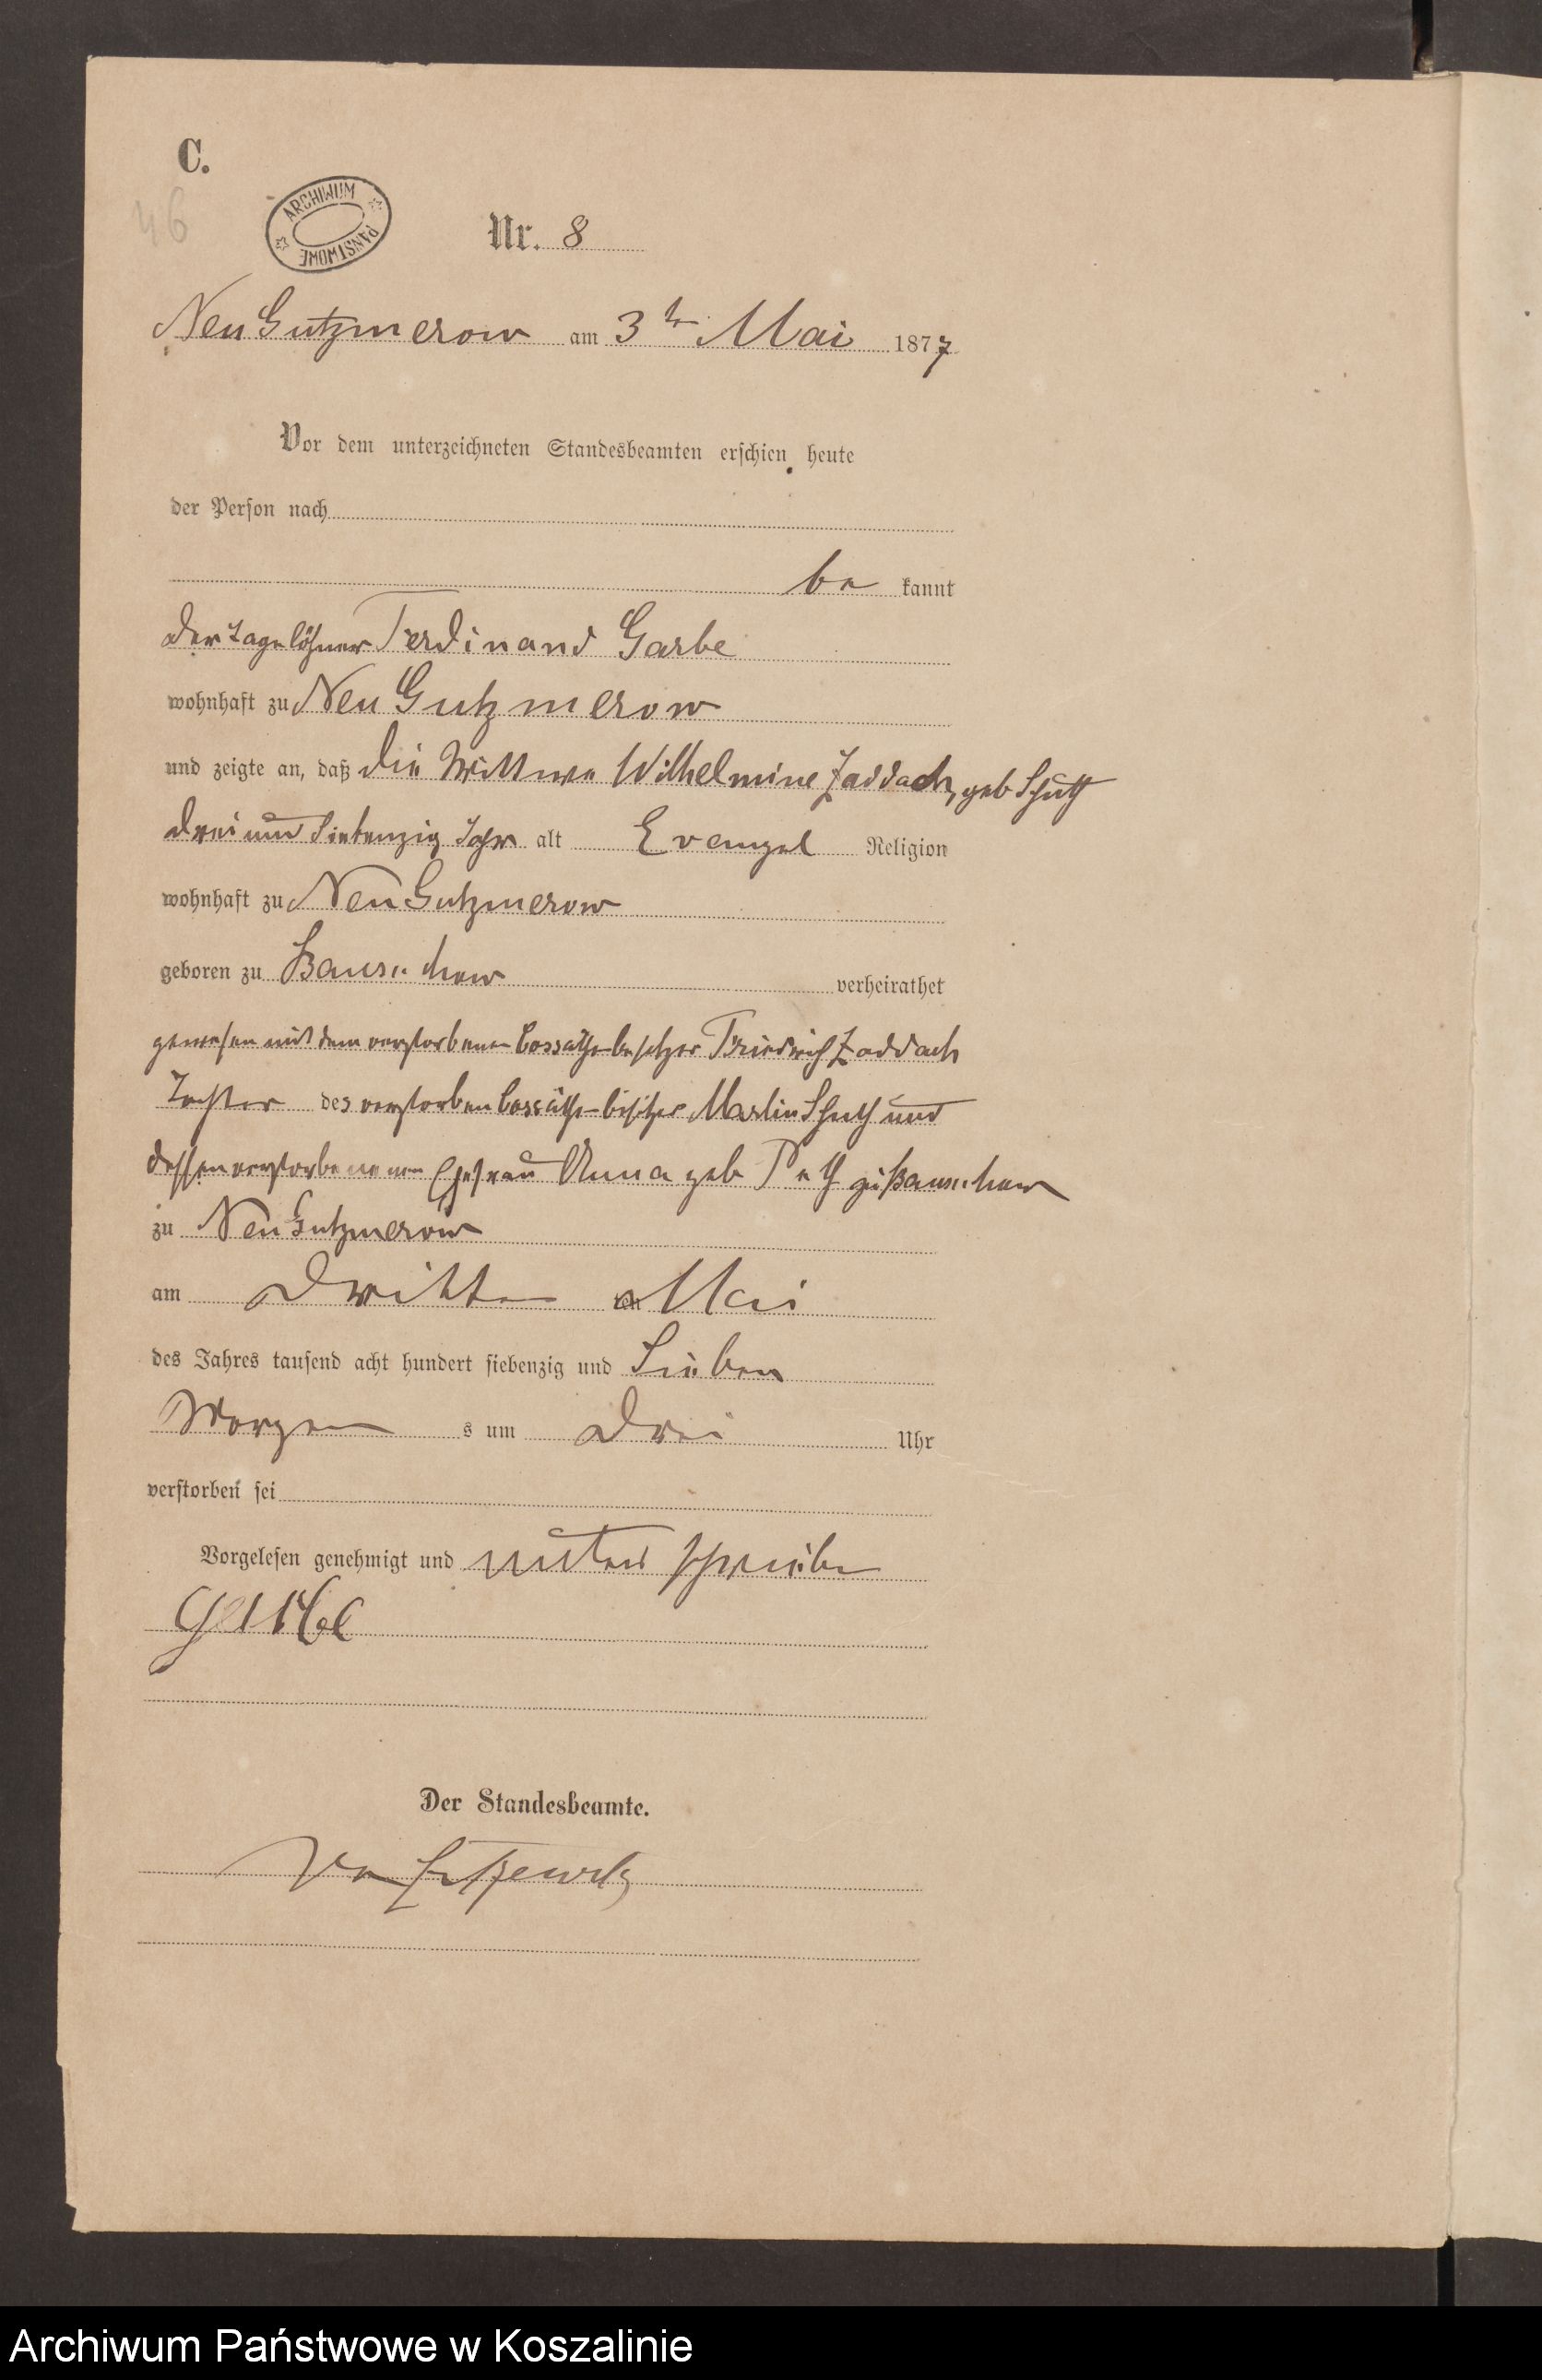 C.
46
ARCHIWUM PAŃSTWOWE
Nr. 8
Neu Gutzmerow am 3ten Mai 1877
Vor dem unterzeichneten Standesbeamten erschien heute
der Person nach
be kannt
der Tagelöhner Ferdinand Garbe
wohnhaft zu Neu Gutzmerow
und zeigte an, daß die Wittwe Wilhelmine Zaddach, geb Schuth
drei und Siebenzig Jahr alt Evangel Religion
wohnhaft zu Neu Gutzmerow
geboren zu verheirathet
gewesen mit dem verstorbenen Cossäthenbesitzer Friedrich Zaddach
Tochter des verstorben Cossäthenbesitzer Martin Schuth und
dessen verstorbenenen Ehefrau Anna geb Peth zu
zu Neu Gutzmerow
am dritten Mai
des Jahres tausend acht hundert siebenzig und Sieben
Morgen s um drei Uhr
verstorben sei
Vorgelesen genehmigt und unterschrieben
Garbe
Der Standesbeamte.
Archiwum Państwowe w Koszalinie